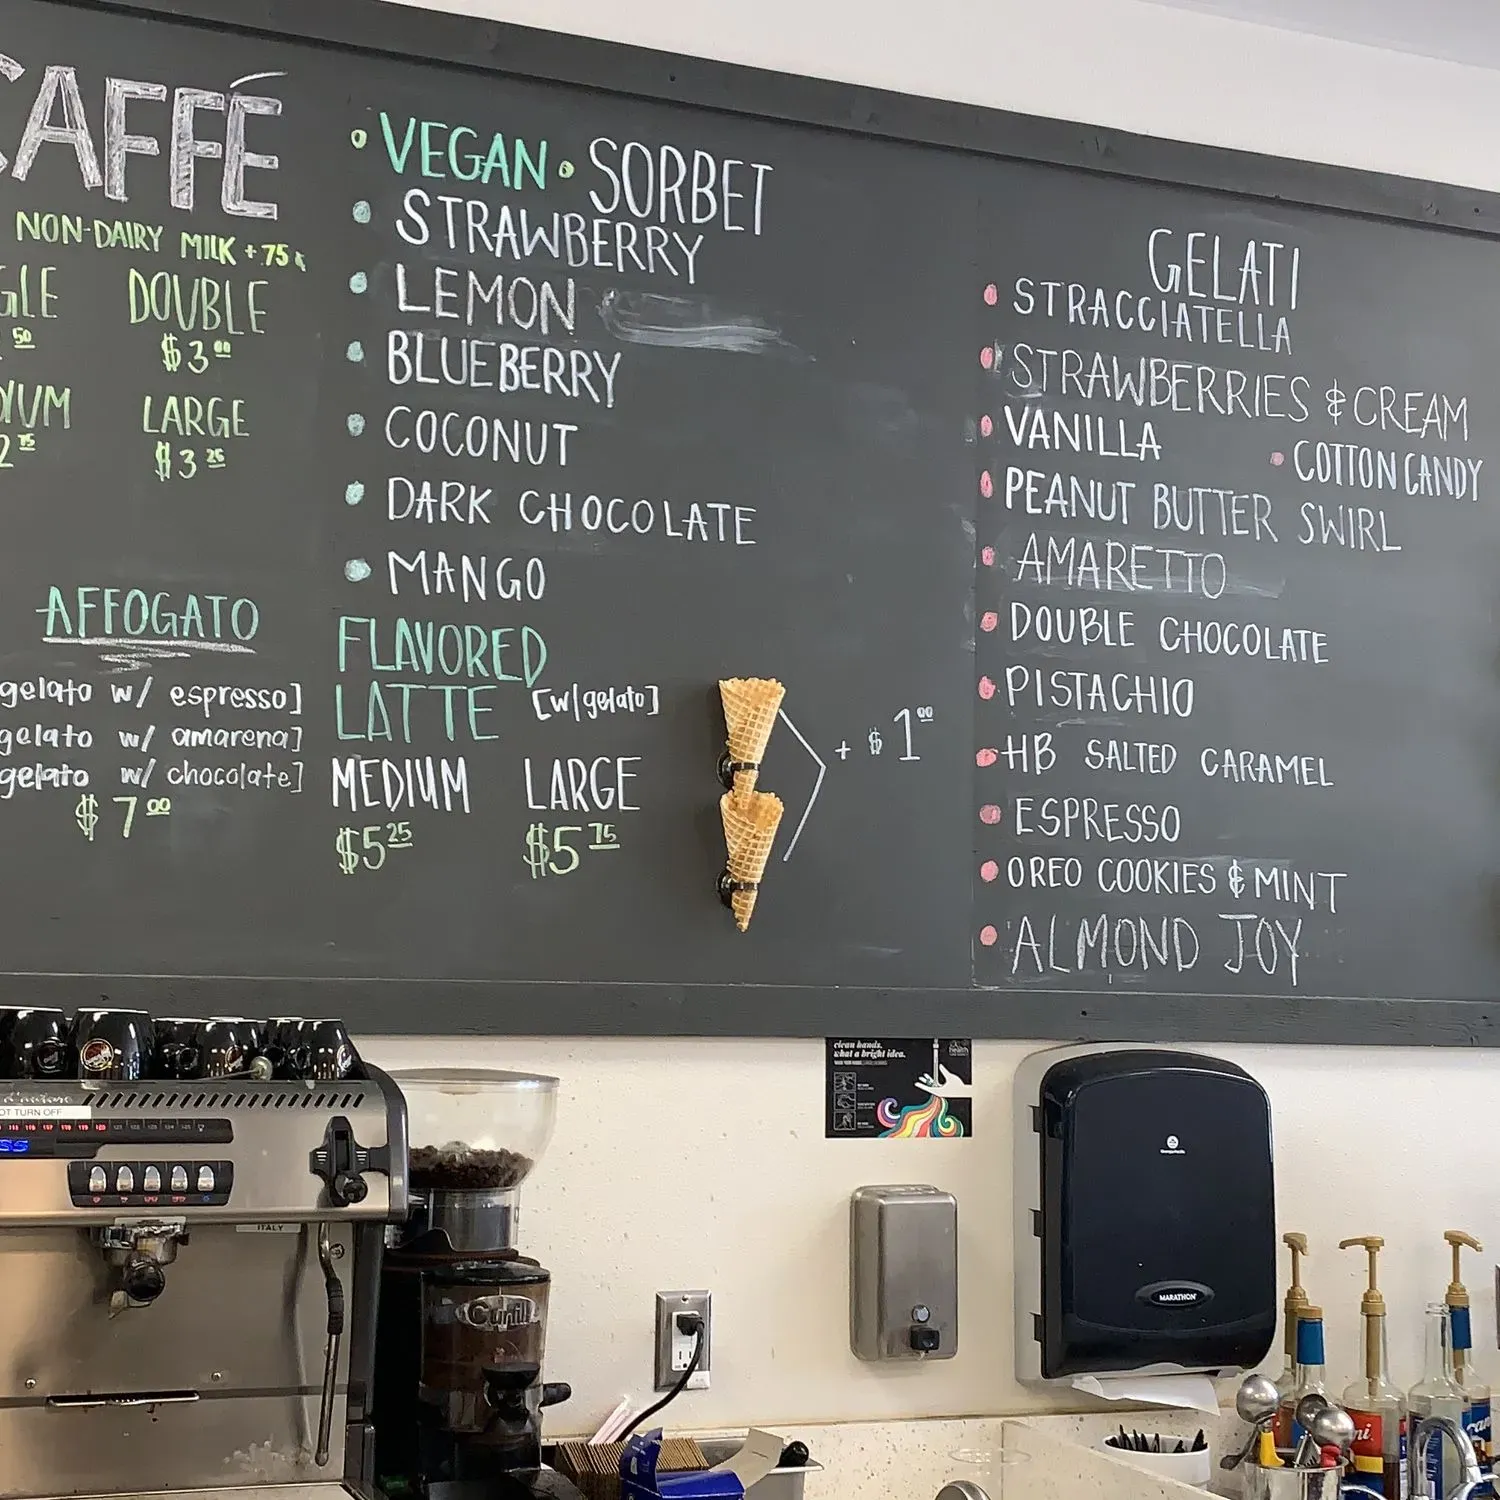 CAFFÉ
NON-DAIRY MILK + 75¢
DOUBLE
$3.00
LARGE
$3.25
AFFOGATO
gelato w/ espresso]
gelato w/ amarena]
gelato w/ chocolate]
$7.00
• VEGAN • SORBET
• STRAWBERRY
• LEMON
• BLUEBERRY
• COCONUT
• DARK CHOCOLATE
• MANGO
FLAVORED
LATTE [w/gelato]
MEDIUM LARGE
$5.25 $5.75
+ $1.00
GELATI
• STRACCIATELLA
• STRAWBERRIES & CREAM
• VANILLA • COTTON CANDY
• PEANUT BUTTER SWIRL
• AMARETTO
• DOUBLE CHOCOLATE
• PISTACHIO
• HB SALTED CARAMEL
• ESPRESSO
• OREO COOKIES & MINT
• ALMOND JOY
clean hands.
what a bright idea.
health
OT TURN OFF
ITALY
MARATHON